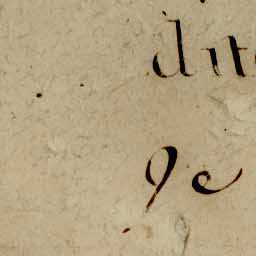 dit
9e